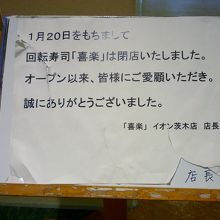 1月20日をもちまして
回転寿司「喜楽」は閉店いたしました。
オープン以来、皆様にご愛願いただき。
誠にありがとうございました。
「喜楽」 イオン茨木店 店長
店長